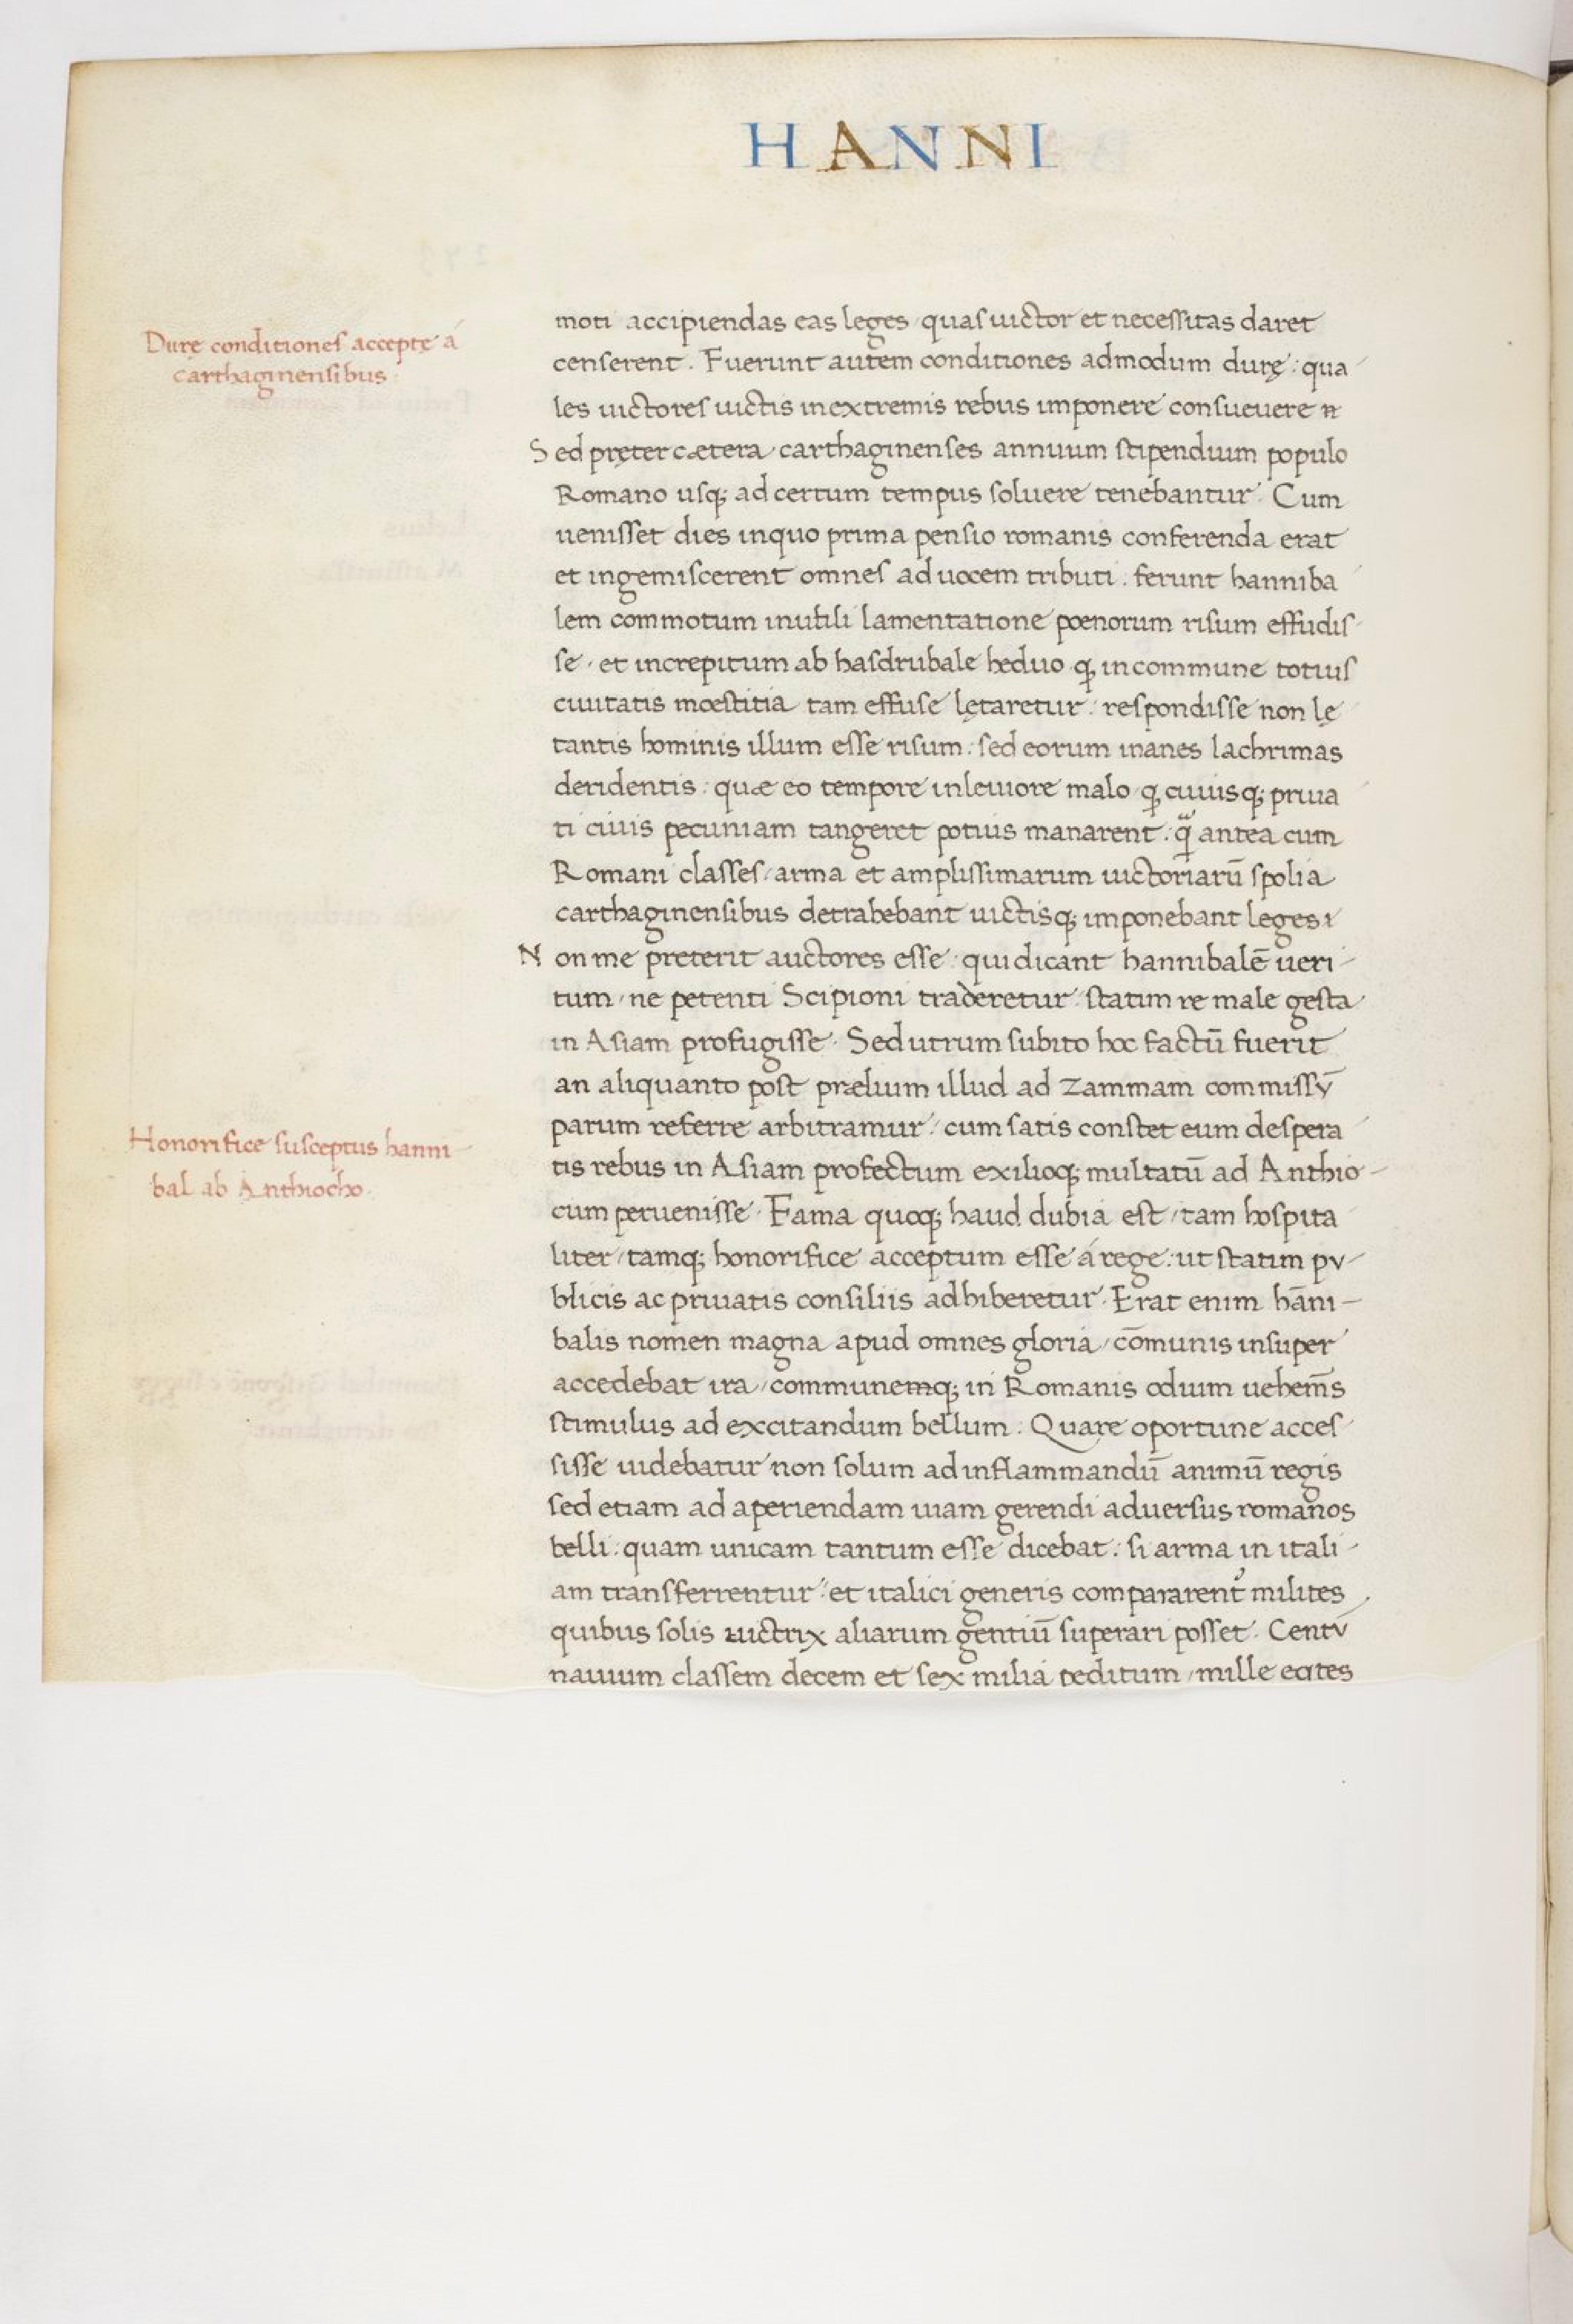 HANNI
Durę conditiones acceptę á
carthaginensibus
moti accipiendas eas leges quas uictor et necessitas daret
censerent. Fuerunt autem conditiones admodum durę: qua
les uictores uictis in extremis rebus imponere consueuere
Sed pręter cætera carthaginenses annuum stipendium populo
Romano usq; ad certum tempus soluere tenebantur. Cum
uenisset dies inquo prima pensio romanis conferenda erat
et ingemiscerent omnes ad uocem tributi: ferunt hanniba
lem commotum inutili lamentatione poenorum risum effudis
se, et increpitum ab hasdrubale heduo ꝙ in commune totius
ciuitatis moestitia tam effuse lętaretur: respondisse non lę
tantis hominis illum esse risum: sed eorum inanes lachrimas
deridentis: quæ eo tempore in leuiore malo ꝙ cuiusq; priua
ti ciuis pecuniam tangeret potius manarent: q̃ antea cum
Romani classes, arma et amplissimarum uictoriarū spolia
carthaginensibus detrahebant uictisq; imponebant leges
Non me preterit auctores esse: qui dicant hannibalē ueri-
tum, ne petenti Scipioni traderetur: statim re male gesta
in Asiam profugisse. Sed utrum subito hoc factū fuerit
an aliquanto post prælium illud ad zammam commissv̄
parum referre arbitramur: cum satis constet eum despera
tis rebus in Asiam profectum exilioq; multatū ad Anthio-
cum peruenisse. Fama quoq; haud dubia est, tam hospita
liter, tamq; honorifice acceptum esse á rege: ut statim pv-
blicis ac priuatis consiliis adhiberetur. Erat enim hāni-
balis nomen magna apud omnes gloria, cōmunis insuper
accedebat ira, communemq; in Romanis odium uehem̄s
stimulus ad excitandum bellum. Quare oportune acces
sisse uidebatur non solum ad inflammandū animū regis
sed etiam ad aperiendam uiam gerendi aduersus romanos
belli: quam unicam tantum esse dicebat: si arma in itali-
am transferrentur: et italici generis compararent᷑ milites
quibus solis uictrix aliarum gentiū superari posset. Centv̄
nauium classem decem et sex milia peditum, mille eq̃tes
Honorifice susceptus hanni-
bal ab Anthiocho